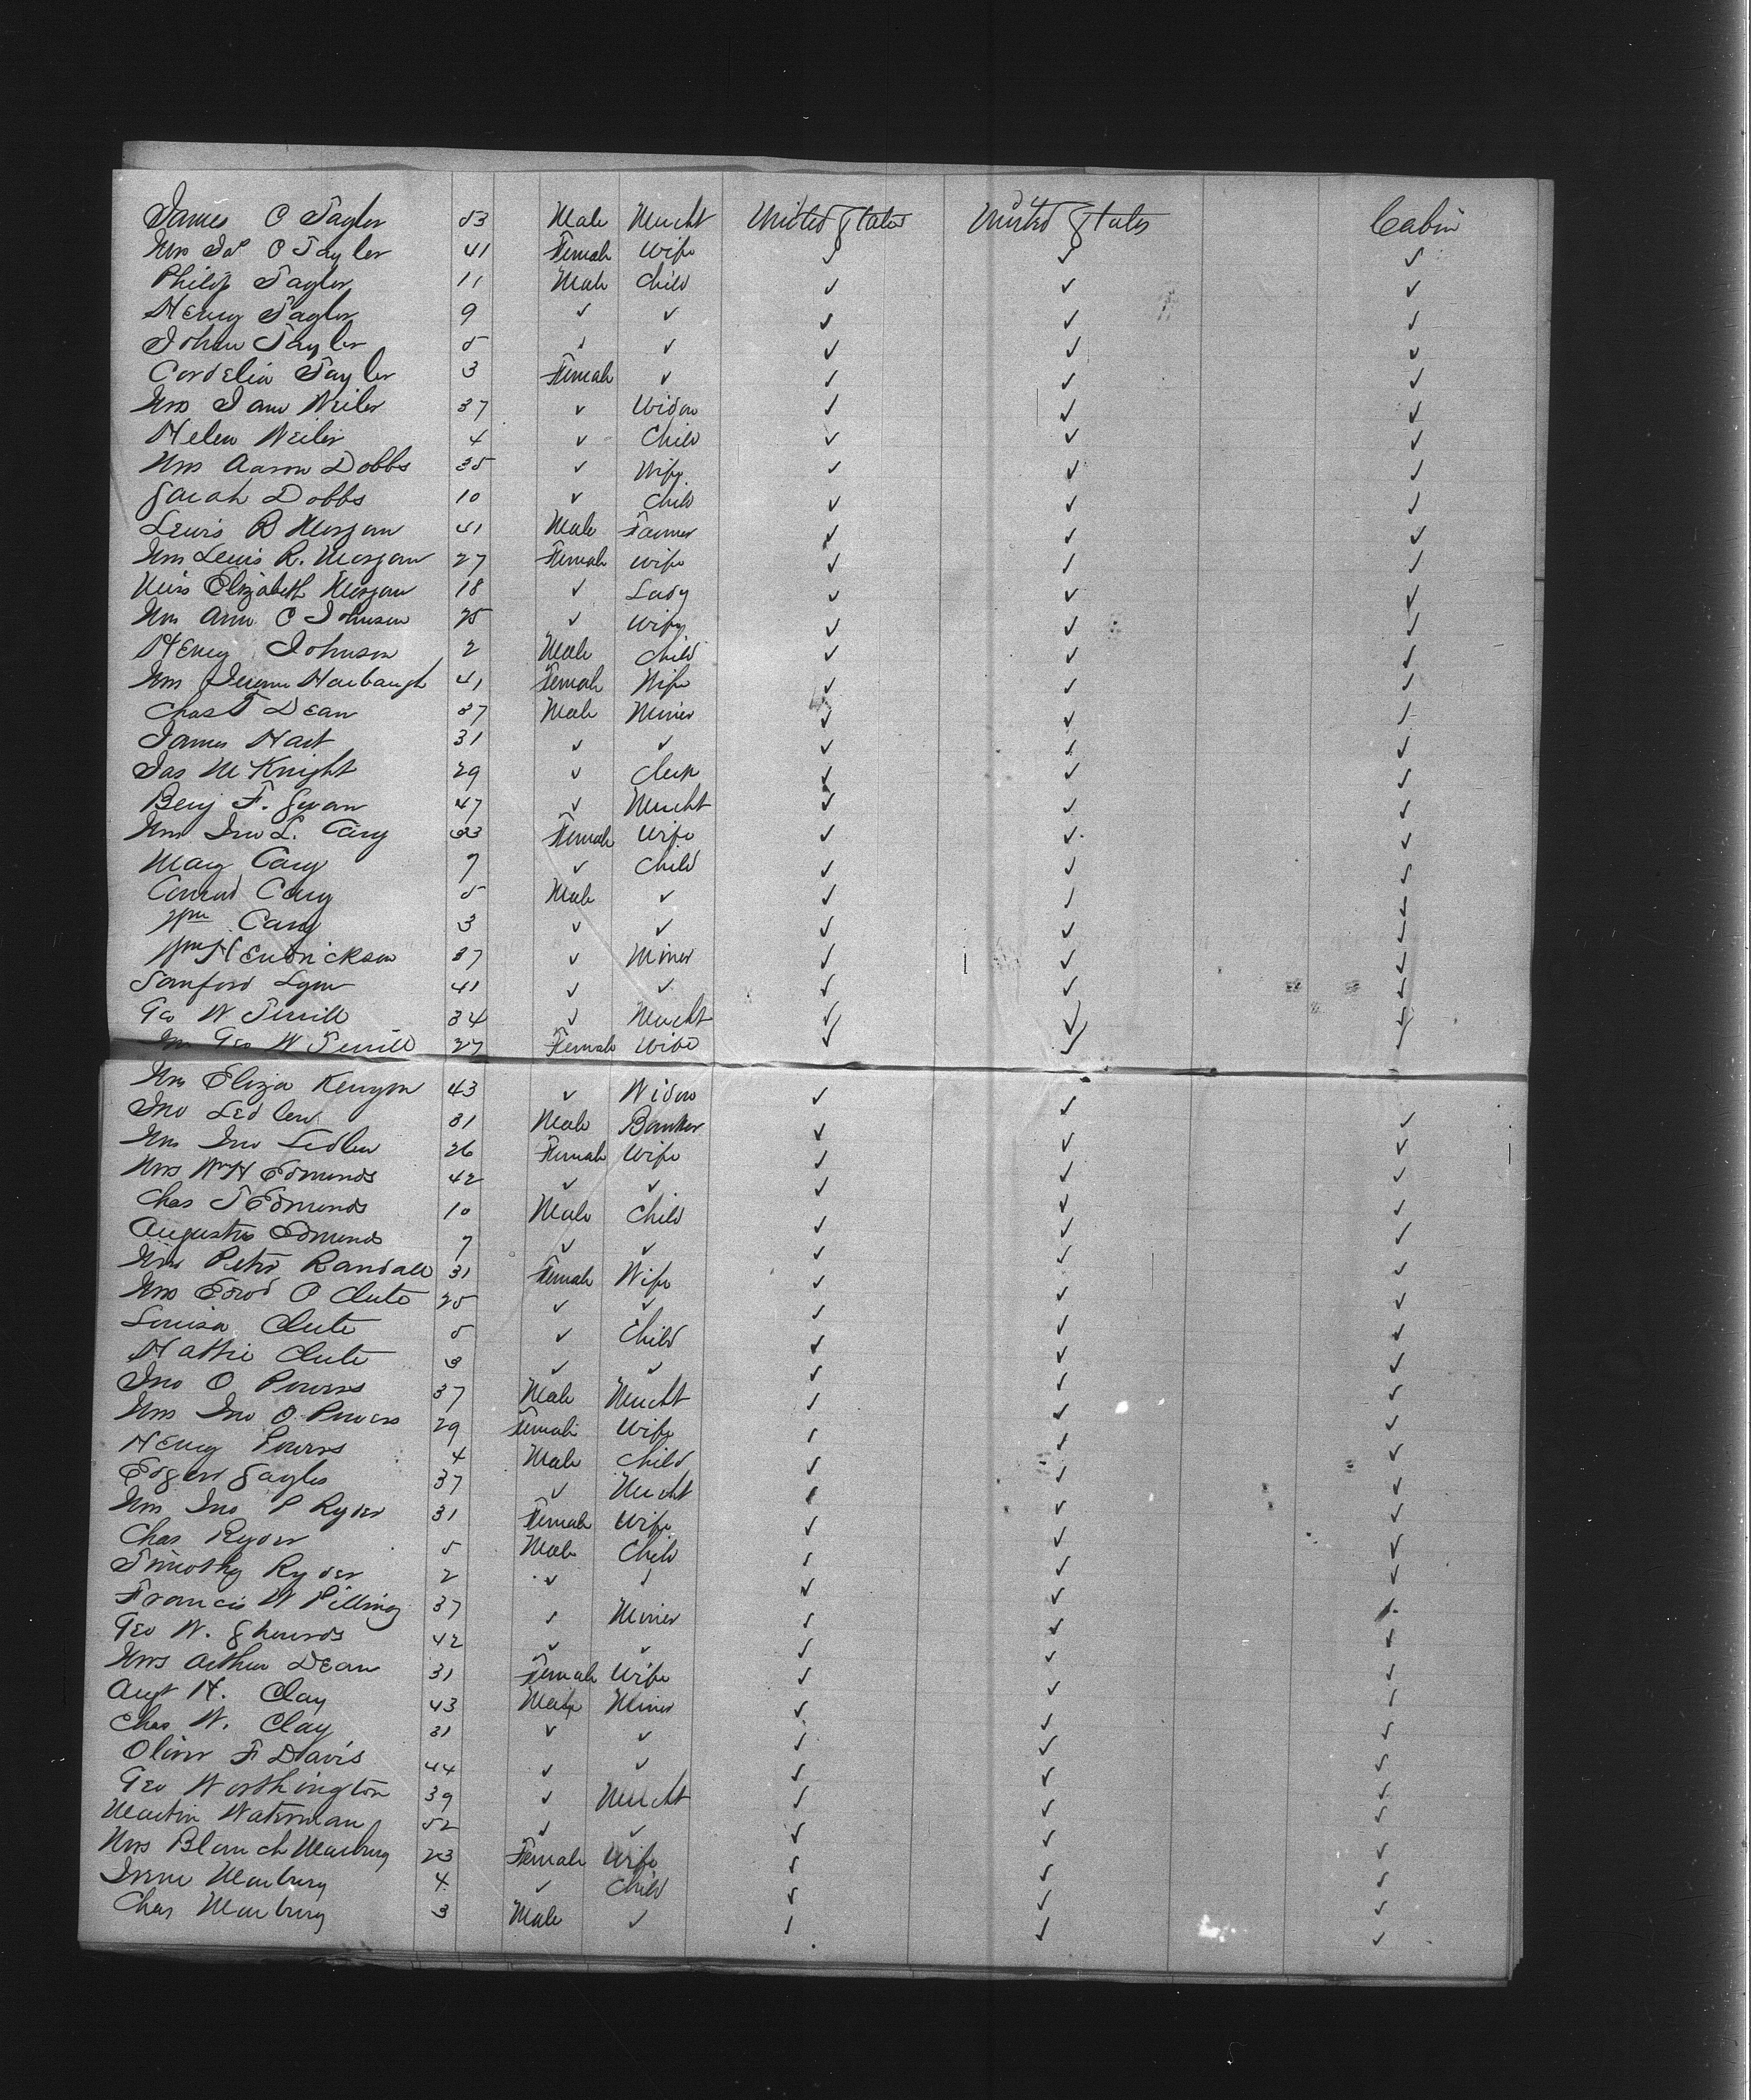 James C Taylor 53 Male Mercht United States United States Cabin
Mrs Js C Taylor 41 Female Wife ✓ ✓ ✓
Philip Taylor 11 Male Child ✓ ✓ ✓
Henry Taylor 9 ✓ ✓ ✓ ✓ ✓
John Taylor 5 ✓ ✓ ✓ ✓ ✓
Cordelia Taylor 3 Female ✓ ✓ ✓ ✓
Mrs Jane Weiler 37 ✓ Widow ✓ ✓ ✓
Helen Weiler 4 ✓ Child ✓ ✓ ✓
Mrs Aaron Dobbs 35 ✓ Wife ✓ ✓ ✓
Sarah Dobbs 10 ✓ Child ✓ ✓ ✓
Lewis R Morgan 41 Male Farmer ✓ ✓ ✓
Mrs Lewis R. Morgan 27 Female Wife ✓ ✓ ✓
Miss Elizabeth Morgan 18 ✓ Lady ✓ ✓ ✓
Mrs Ann C Johnson 25 ✓ Wife ✓ ✓ ✓
Henry Johnson 2 Male Child ✓ ✓ ✓
Mrs Jerome Harbaugh 41 Female Wife ✓ ✓ ✓
Chas T Dean 37 Male Miner ✓ ✓ ✓
James Hart 31 ✓ ✓ ✓ ✓ ✓
Jas McKnight 29 ✓ Clerk ✓ ✓ ✓
Benj F. Swan 47 ✓ Mercht ✓ ✓ ✓
Mrs Jno L. Cary 33 Female Wife ✓ ✓ ✓
Mary Cary 7 ✓ Child ✓ ✓ ✓
Conrad Cary 5 Male ✓ ✓ ✓ ✓
Wm Cary 3 ✓ ✓ ✓ ✓ ✓
Wm Hendrickson 37 ✓ Miner ✓ ✓ ✓
Sanford Lyon 41 ✓ ✓ ✓ ✓ ✓
Geo W Terrill 34 ✓ Mercht ✓ ✓ ✓
Mrs Geo W Terrill 27 Female Wife ✓ ✓ ✓
Mrs Eliza Kenyon 43 ✓ Widow ✓ ✓ ✓
Jno Ledlen 31 Male Banker ✓ ✓ ✓
Mrs Jno Ledlen 26 Female Wife ✓ ✓ ✓
Mrs Wm H Edmonds 42 ✓ ✓ ✓ ✓ ✓
Chas T Edmonds 10 Male Child ✓ ✓ ✓
Augustus Edmonds 7 ✓ ✓ ✓ ✓ ✓
Mrs Peter Randall 31 Female Wife ✓ ✓ ✓
Mrs Edwd C Clute 25 ✓ ✓ ✓ ✓ ✓
Louisa Clute 5 ✓ Child ✓ ✓ ✓
Hattie Clute 3 ✓ ✓ ✓ ✓ ✓
Jno O Powers 37 Male Mercht ✓ ✓ ✓
Mrs Jno O. Powers 29 Female Wife ✓ ✓ ✓
Henry Powers 4 Male Child ✓ ✓ ✓
Edgar Sayles 37 ✓ Mercht ✓ ✓ ✓
Mrs Jno P Ryder 31 Female Wife ✓ ✓ ✓
Chas Ryder 5 Male Child ✓ ✓ ✓
Timothy Ryder 2 ✓ ✓ ✓ ✓ ✓
Francis W Pilling 37 ✓ Miner ✓ ✓ ✓
Geo W. Shounds 42 ✓ ✓ ✓ ✓ ✓
Mrs Arthur Dean 31 Female Wife ✓ ✓ ✓
Augt H. Clay 43 Male Miner ✓ ✓ ✓
Chas W. Clay 31 ✓ ✓ ✓ ✓ ✓
Oliver F Davis 44 ✓ ✓ ✓ ✓ ✓
Geo Worthington 39 ✓ Mercht ✓ ✓ ✓
Martin Waterman 52 ✓ ✓ ✓ ✓ ✓
Mrs Blanch Marbury 23 Female Wife ✓ ✓ ✓
Irene Marbury 4 ✓ Child ✓ ✓ ✓
Chas Marbury 3 Male ✓ ✓ ✓ ✓